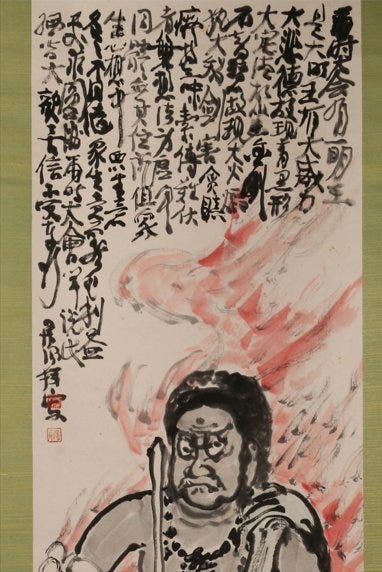 爾時大会有一明王
是大明王有大威力
大悲徳故現青黒形
大定徳故坐金剛
石大智慧故現大火焔
執大智剣害貪瞋
癡持三昧索縛難伏
者無相法身虚空
同体無其住所但住衆
生心想之中衆生意想
各各不同随衆生意而作利益
所求円満爾時大會聞説是経
皆大歓喜信受奉行
拝寫